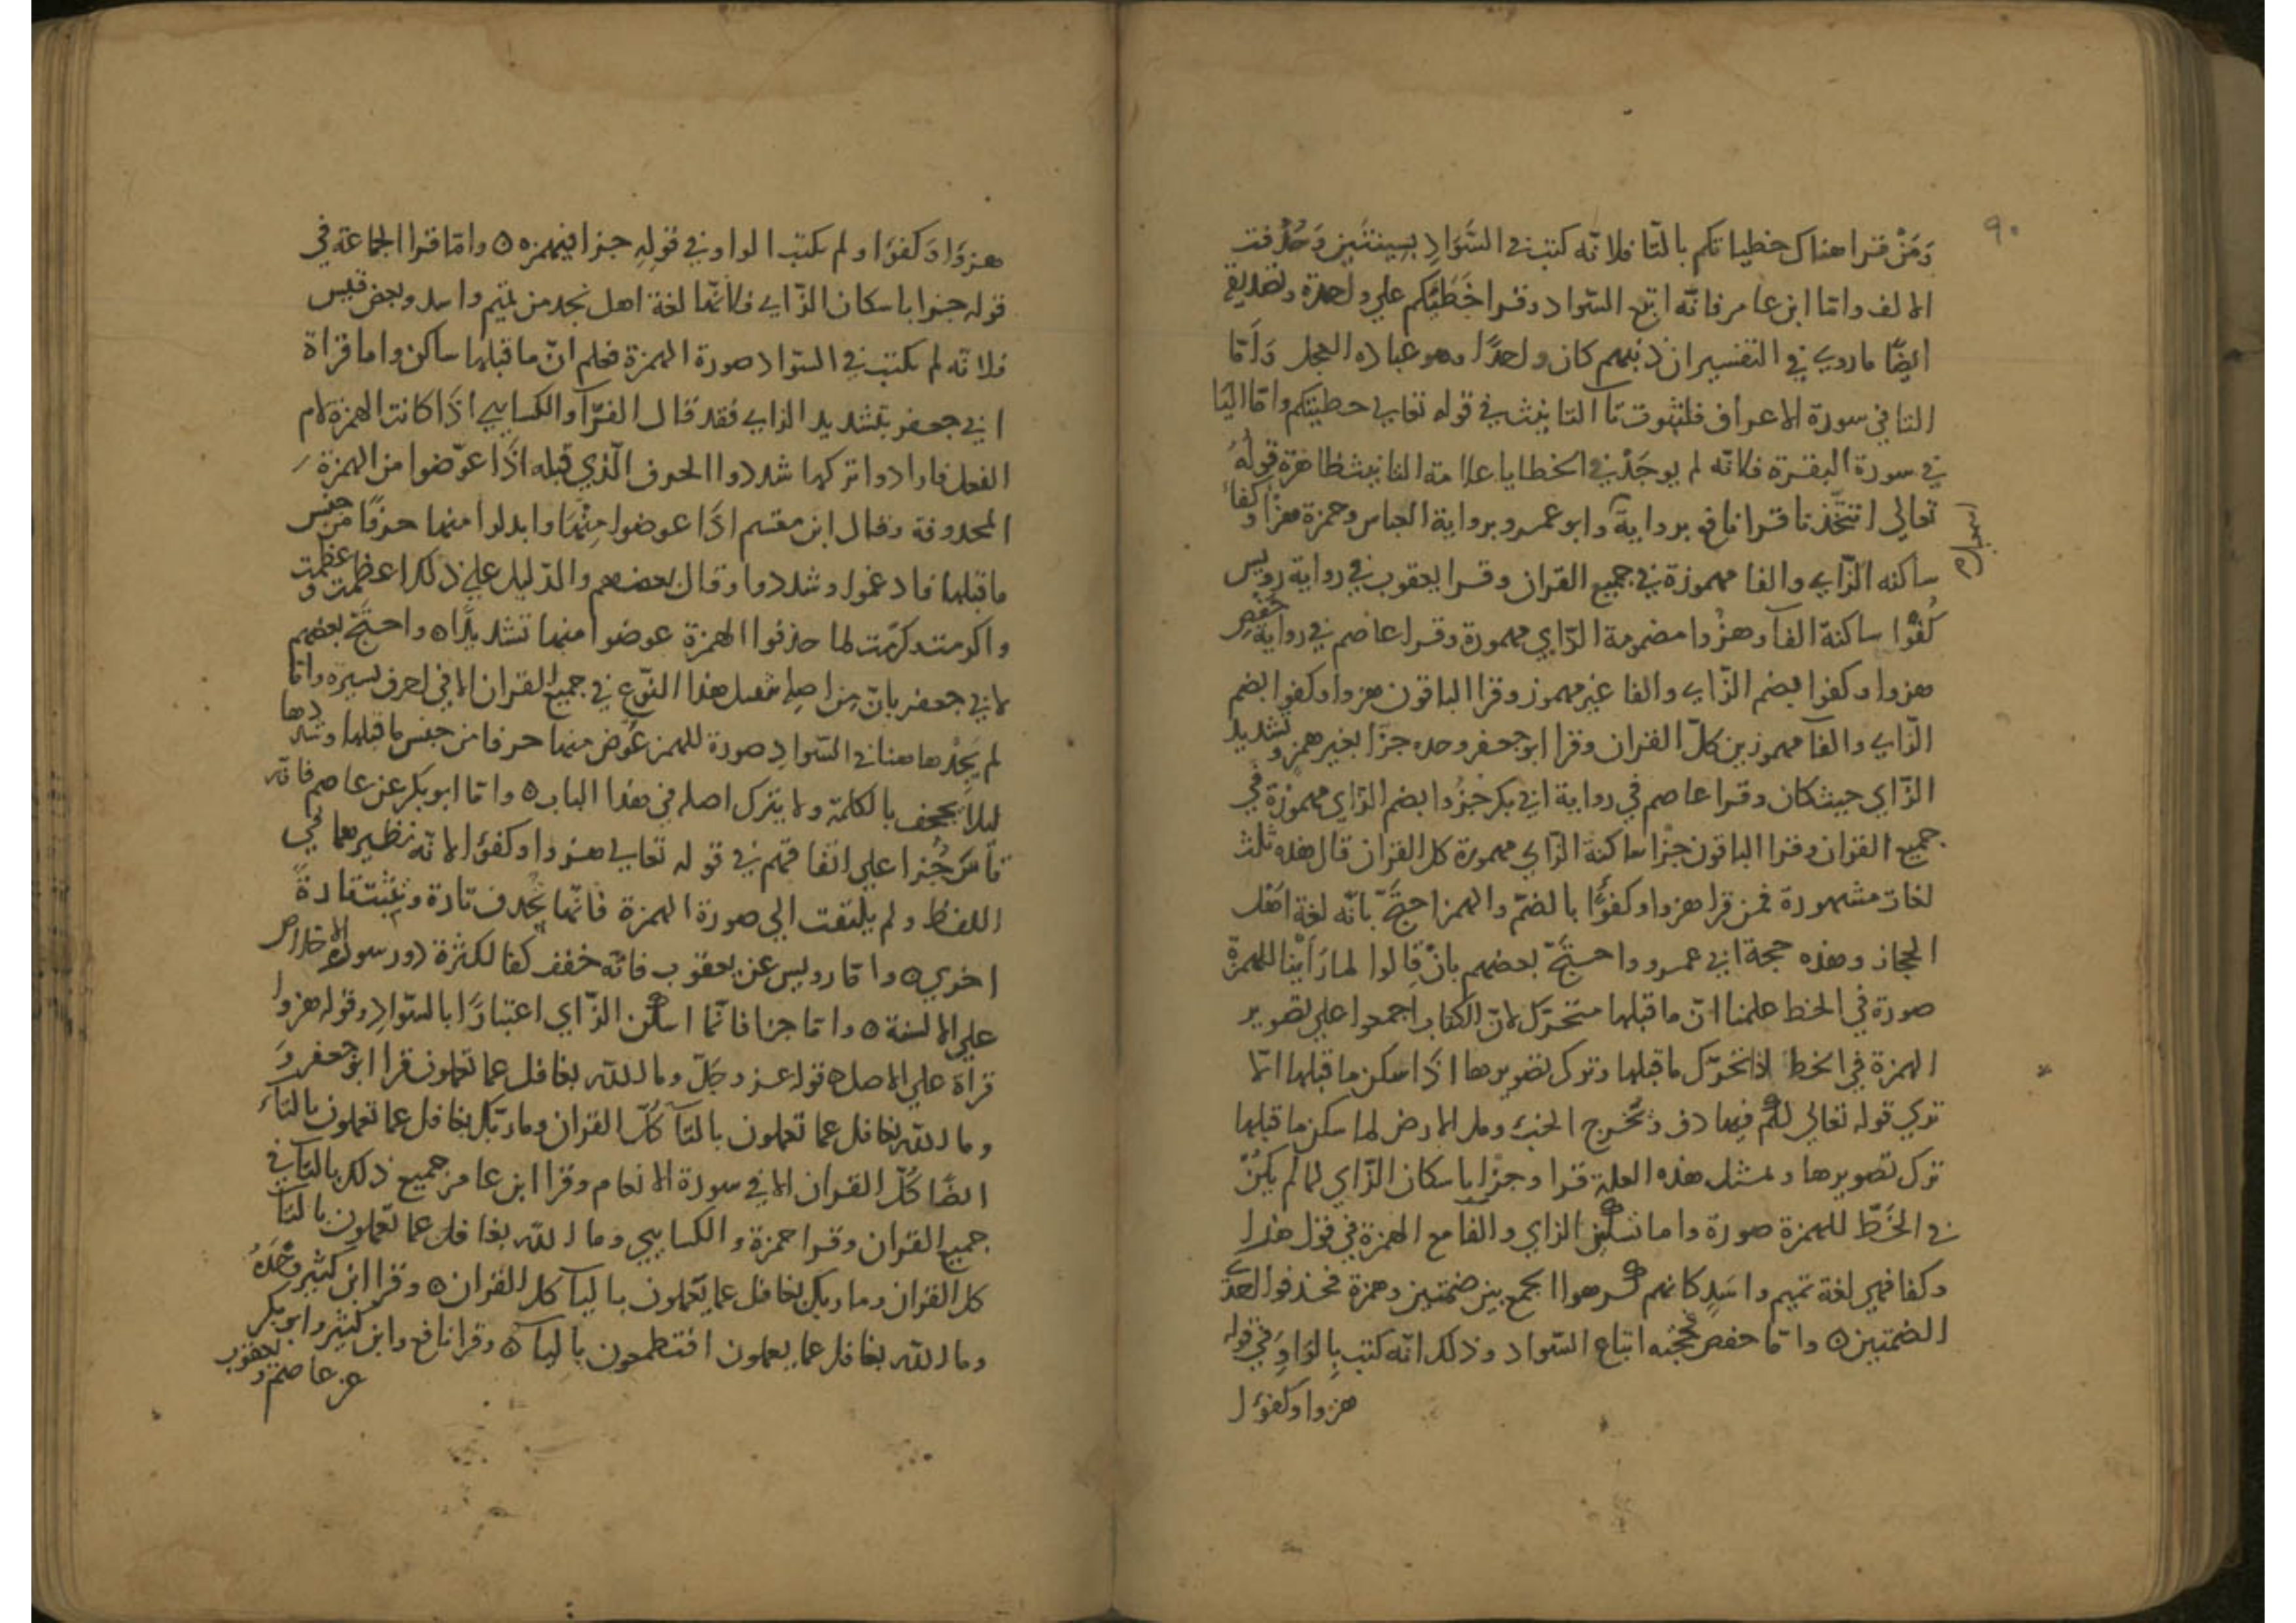 ٩٠
وَمَنْ قرا هناك خطياتكم بالتا فلانه كتب في السَّوَادِ بسينتين وَحُذفت
الالف واما ابن عامر فانه اتبع السواد وقرا خَطَيئتكم علي واحدة وتصديق
ايضًا ما روي في التفسير ان ذنبهم كان واحدًا وهو عبادة العجل وَامّا
التا في سورة الاعراف فلثبوت تآ التانيث في قوله تعالي خطيئتكم واما اليا
في سورة البقرة فلانه لم يوجَدْ في الخطايا علامة التانيث ظاهرة قولُهُ
تعالي اتتخّذنا قرا نافع برواية وابو عمرو برواية العباس وحمزة هزْا وكفا
ساكنه الزّاي والفا مهموزة في جميع القران وقرا يعقوب في رواية رويس
كُفْوًا ساكنة الفآ وهزُوا مضمومة الزّاي مهموزة وقرا عاصم في رواية حفص
هزوا وكفوا بضم الزّاي والفا غير مهموز وقرا الباقون هزوا وكفوا بضم
الزّاي والفآ مهموزين كلّ القران وقرا ابو جعفر وحده جزّا بغير همز وتشديد
الزّاي حيث كان وقرا عاصم في رواية ابي بكر جُزُوا بضم الزاي مهموزة في
جميع القران وقرا الباقون جزْا ساكنة الزاي مهموزة كل القران قال هذه ثلث
لغات مشهورة فمن قرا هزوا وكفوًا بالضم والهمز احتجّ بانّه لغة اهل
الحجاز وهذه حجة ابي عمرو واحتجّ بعضهم بان قالوا لما رَاَيْنا للهمزة
صورة في الخط علمنا انّ ما قبلها متحرّك لانّ الكتاب اجمعوا علي تصوير
الهمزة في الخط اذا تحرّك ما قبلها وترك تصويرها اذا سكن ما قبلها الا
تري قوله تعالي لكم فيها دف وتخرج الخبْ ومل الارض لما سكن ما قبلها
ترك تصويرها وبمثل هذه العلة قرا وجزْا باسكان الزّاي لما لم يكنْ
في الخَطّ للهمزة صورة واما تسكين الزاي والفا مع الهمزة في قول هذا
وكفا فهي لغة تميم واسَدٍ كانهم كرهوا الجمع بين ضمتين وهمزة فحذفوا احدي
الضمتين ٥ واما حفص فحجته اتباع السّواد وذلك انّه كتب بالواو في قوله
هزوا وكفوا
هزوًا وَكفوًا ولم يكتب الواو في قوله جزا فيهمزه ٥ واما قرا الجماعة في
قوله جزا باسكان الزّاي فلانها لغة اهل نجد من تميم واسد وبعض قيس
فلانه لم يكتب في السّواد صورة الهمزة فعلم انّ ما قبلها ساكن واما قراة
ابي جعفر بتشديد الزاي فقد قال الفرّآ والكسايي اذَا كانت الهمزة لام
الفعل فارادوا تركها شددوا الحرف الّذي قبله اذَا عوّضوا من الهمزة
المحذوفة وقال ابن مقسم اذَا عوضوا مِنْهَا وابدلوا منها حرفًا من جنس
ما قبلها فادغموا وشددوا وقال بعضهم والدّليل علي ذلك اعظمت وعظّمت
واكرمت وكرّمت لما حذفوا الهمزة عوضوا منها تشديدًا ٥ واحتجّ بعضهم
لابي جعفر بانّ من اصله هذا النّوع في جميع القران الا في احرف يسيرة واما
لم يَجِدْ هاهنا في السّوادِ صورة للهمز عوّض منها حرفا من جنس ما قبلها وشددها
ليلا يجحف بالكلمة ولا يترك اصله في هذا الباب ٥ واما ابو بكر عن عاصم فانه
قاسَ جُزا علي اتفاقهم في قوله تعالي هزوا وكفوا لانّه نظيرهما في
اللفظ ولم يلتفت الي صورة الهمزة فانّها تُحذف تارة وتثبت تارةً
اخري ٥ واما رويس عن يعقوب فانّه خفف كفا لكثرة دور سورة الاخلاص
علي الالسنة ٥ واما جزا فانّما اسكن الزّاي اعتبارًا بالسّوادِ وقوله هزوا
قراة علي الاصل ٥ قوله عز وجَلّ وما الله بغافل عما تعملون قرا ابو جعفر وَ
وما الله بغافل عما تعملون بالتآ كلّ القران وما ربّك بغافل عما تعملون بالتآ
ايضًا كُلّ القران الا في سورة الانعام وقرا ابن عامر جميع ذلك بالتآ في
جميع القران وقرا حمزة والكسايي وما الله بغافل عما تعملون بالتآ
كل القران وما ربك بغافل عما يعملون باليآ كل القران ٥ وقرا ابن كثير وحْدَهُ
وما الله بغافل عما يعملون افتطمعون باليآ ٥ وقرا نافع وابن كثير وابو بكر
عن عاصم ويعقوب